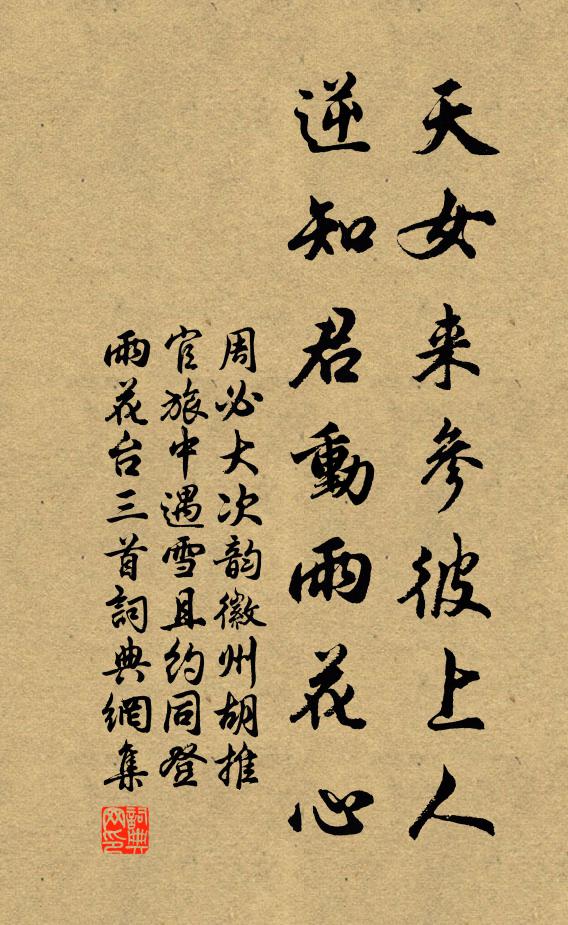 天女来參彼上人
逆知君動雨花心
周必大次韵徽州胡推
官旅中遇雪且約同登
雨花台三首詞典網集
詞典網印